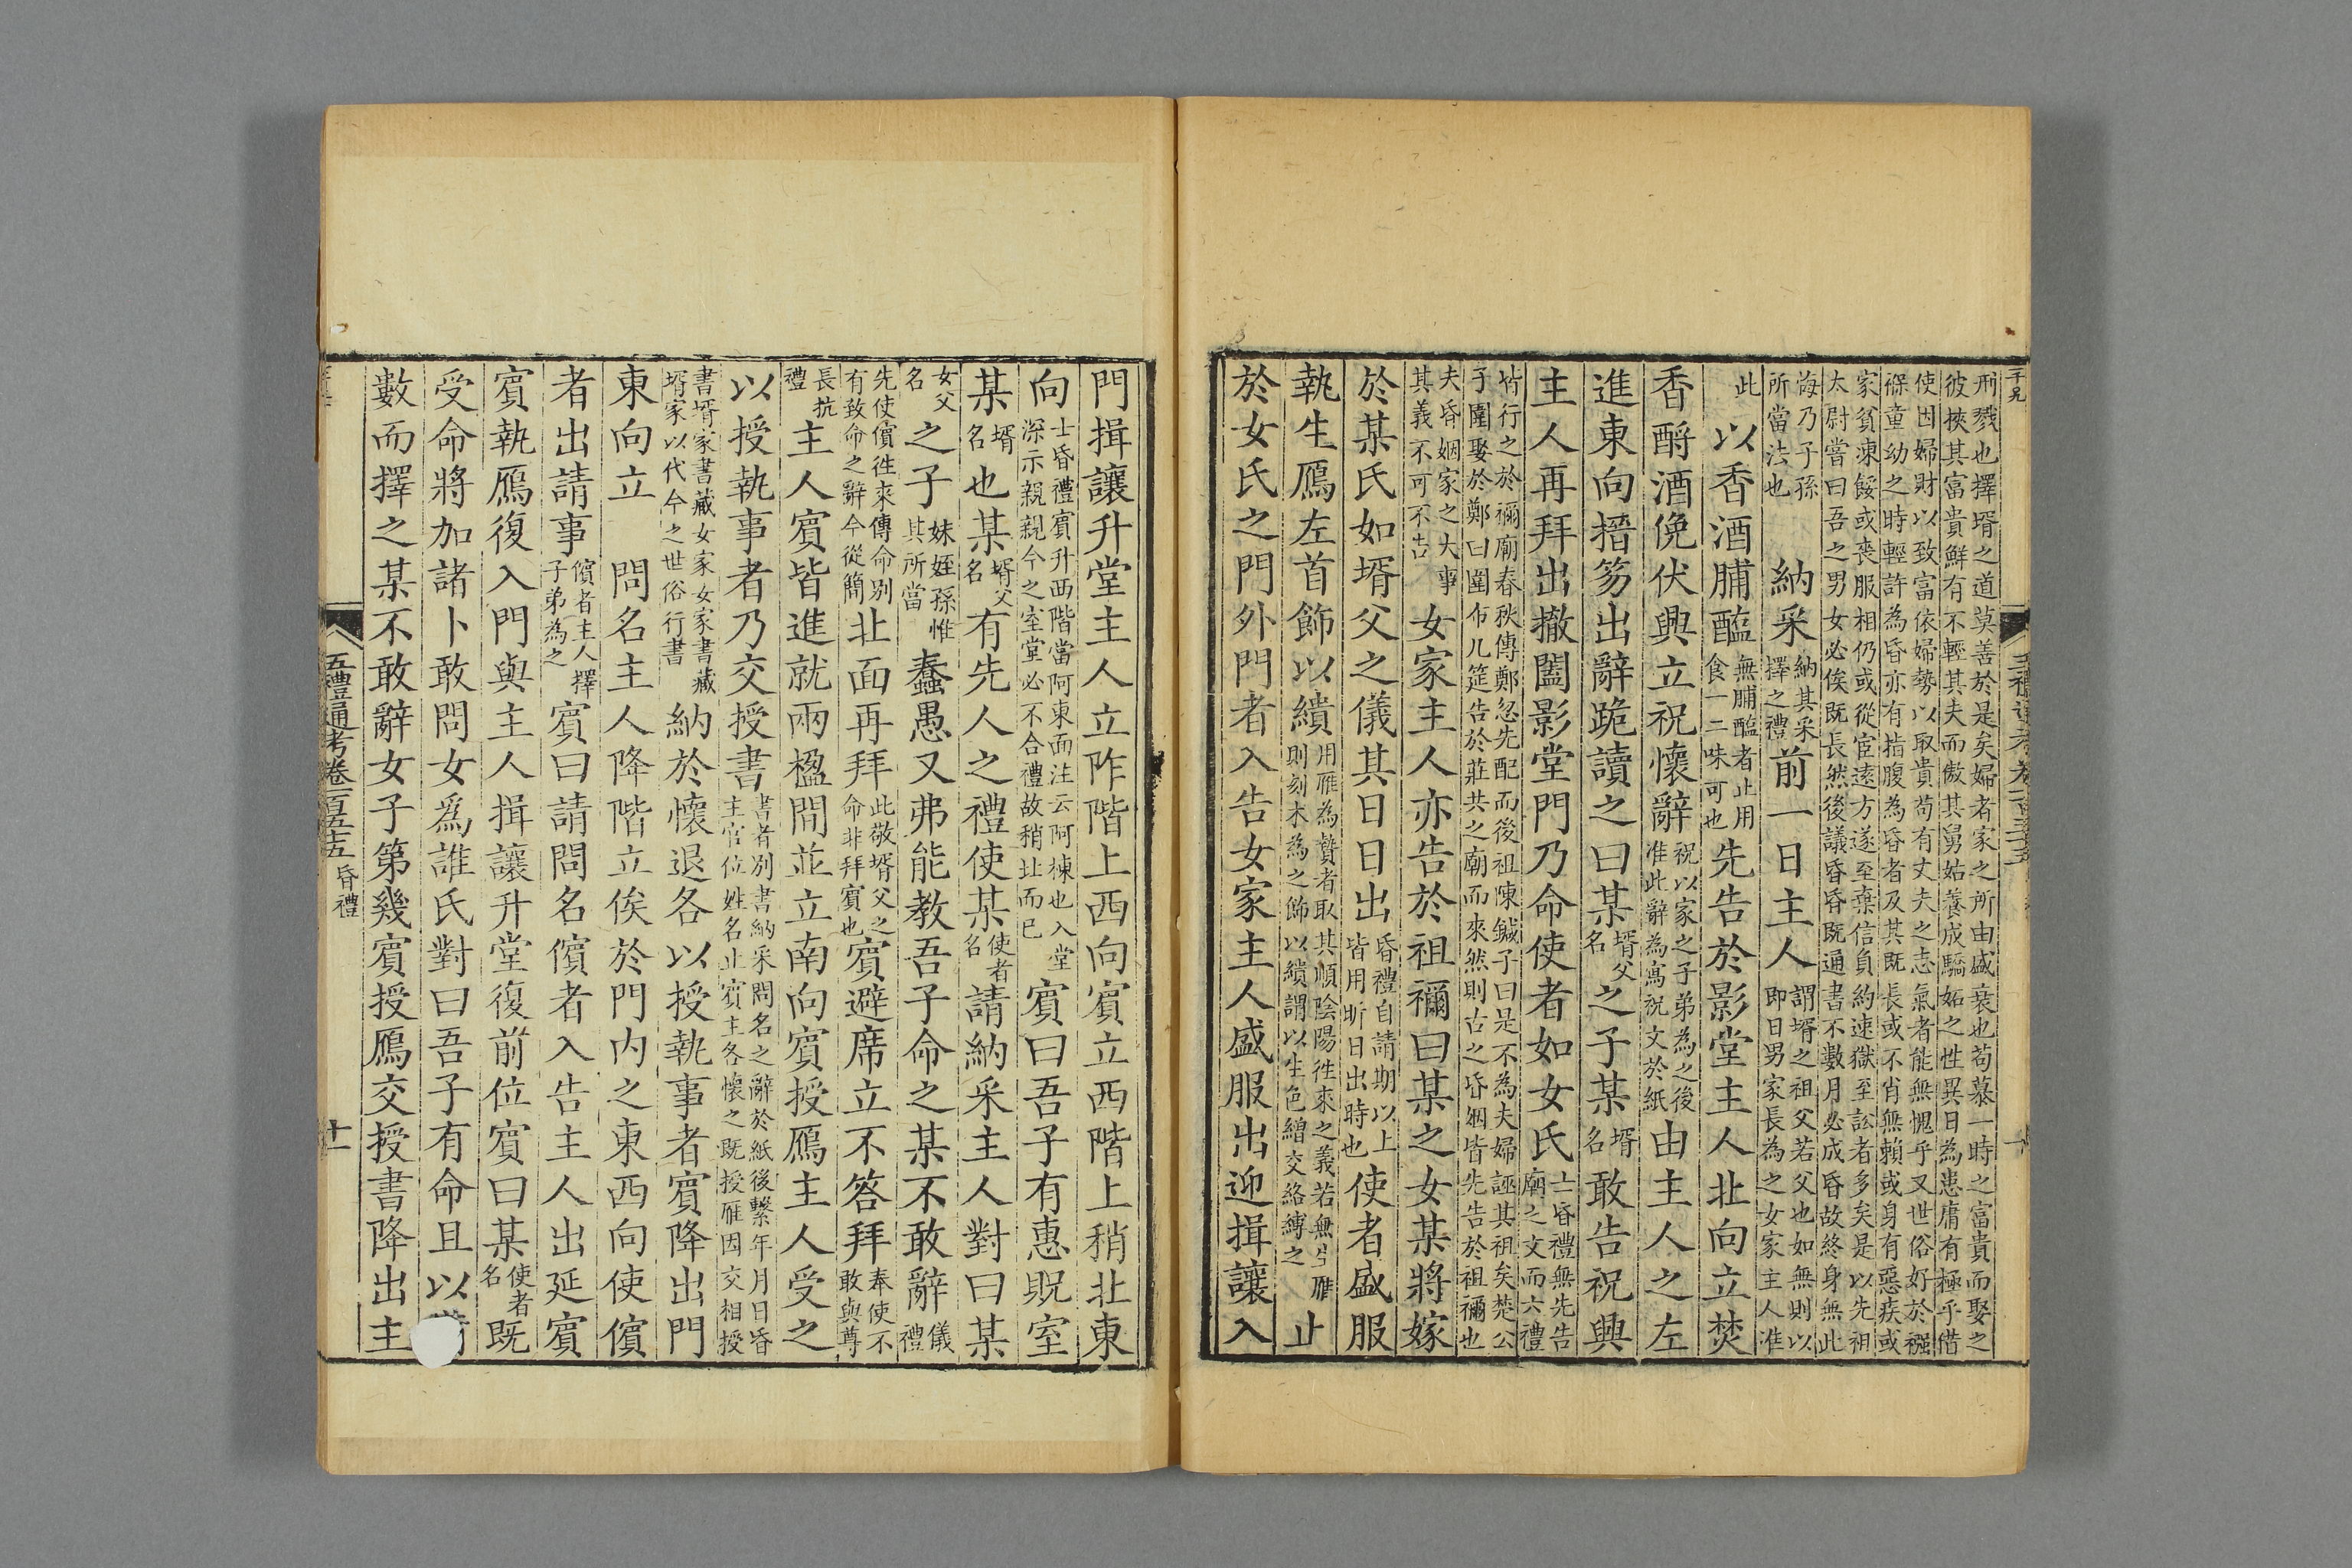 刑戮也擇壻之道莫善於是矣婦者家之所由盛衰也苟慕一時之富貴而娶之
彼挾其富貴鮮有不輕其夫而傲其舅姑養成驕妬之性異日為患庸有極乎借
使因婦財以致富依婦勢以取貴苟有丈夫之志氣者能無愧乎又世俗好於襁
褓童幼之時輕許為昏亦有指腹為昏者及其既長或不肖無賴或身有惡疾或
家貧凍餒或喪服相仍或從宦遠方遂至棄信負約速獄至訟者多矣是以先祖
太尉嘗曰吾之男女必俟既長然後議昏昏既通書不數月必成昏故終身無此
悔乃子孫
所當法也
納采
納其采
擇之禮
前一日主人
謂壻之祖父若父也如無則以
即日男家長為之女家主人准
此
以香酒脯醢
無脯醢者止用
食一二味可也
先告於影堂主人北向立焚
香酹酒俛伏興立祝懷辭
祝以家之子弟為之後
准此辭為寫祝文於紙
由主人之左
進東向搢笏出辭跪讀之曰某
壻父
名
之子某
壻
名
敢告祝興
主人再拜出撤闔影堂門乃命使者如女氏
士昏禮無先告
廟之文而六禮
皆行之於禰廟春秋傳鄭忽先配而後祖陳鍼子曰是不為夫婦誣其祖矣楚公
子圍娶於鄭曰圍布几筵告於莊共之廟而來然則古之昏姻皆先告於祖禰也
夫昏姻家之大事
其義不可不告
女家主人亦告於祖禰曰某之女某將嫁
於某氏如壻父之儀其日日出
昏禮自請期以上
皆用昕日出時也
使者盛服
執生鴈左首飾以繢
用雁為贄者取其順陰陽徃來之義若無生雁
則刻木為之飾以繢謂以生色繒交絡縛之
止
於女氏之門外門者入告女家主人盛服出迎揖讓入
門揖讓升堂主人立阼階上西向賓立西階上稍北東
向
士昏禮賓升西階當阿東面注云阿棟也入堂
深示親親今之室堂必不合禮故稍北而已
賓曰吾子有惠貺室
某
壻
名
也某
壻父
名
有先人之禮使某
使者
名
請納采主人對曰某
女父
名
之子
妹姪孫惟
其所當
蠢愚又弗能教吾子命之某不敢辭
儀
禮
先使儐徃來傳命別
有致命之辭今從簡
北面再拜
此敬壻父之
命非拜賓也
賓避席立不答拜
奉使不
敢與尊
長抗
禮
主人賓皆進就兩楹間並立南向賓授鴈主人受之
以授執事者乃交授書
書者別書納采問名之辭於紙後繫年月日昏
主官位姓名止賓主各懷之既授雁因交相授
書壻家書藏女家女家書藏
壻家以代今之世俗行書
納於懷退各以授執事者賓降出門
東向立　問名主人降階立俟於門內之東西向使儐
者出請事
儐者主人擇
子弟為之
賓曰請問名儐者入告主人出延賓
賓執鴈復入門與主人揖讓升堂復前位賓曰某
使者
名
既
受命將加諸卜敢問女爲誰氏對曰吾子有命且以
數而擇之某不敢辭女子第幾賓授鴈交授書降出主
五禮通考卷一百五十五 昏禮
十一